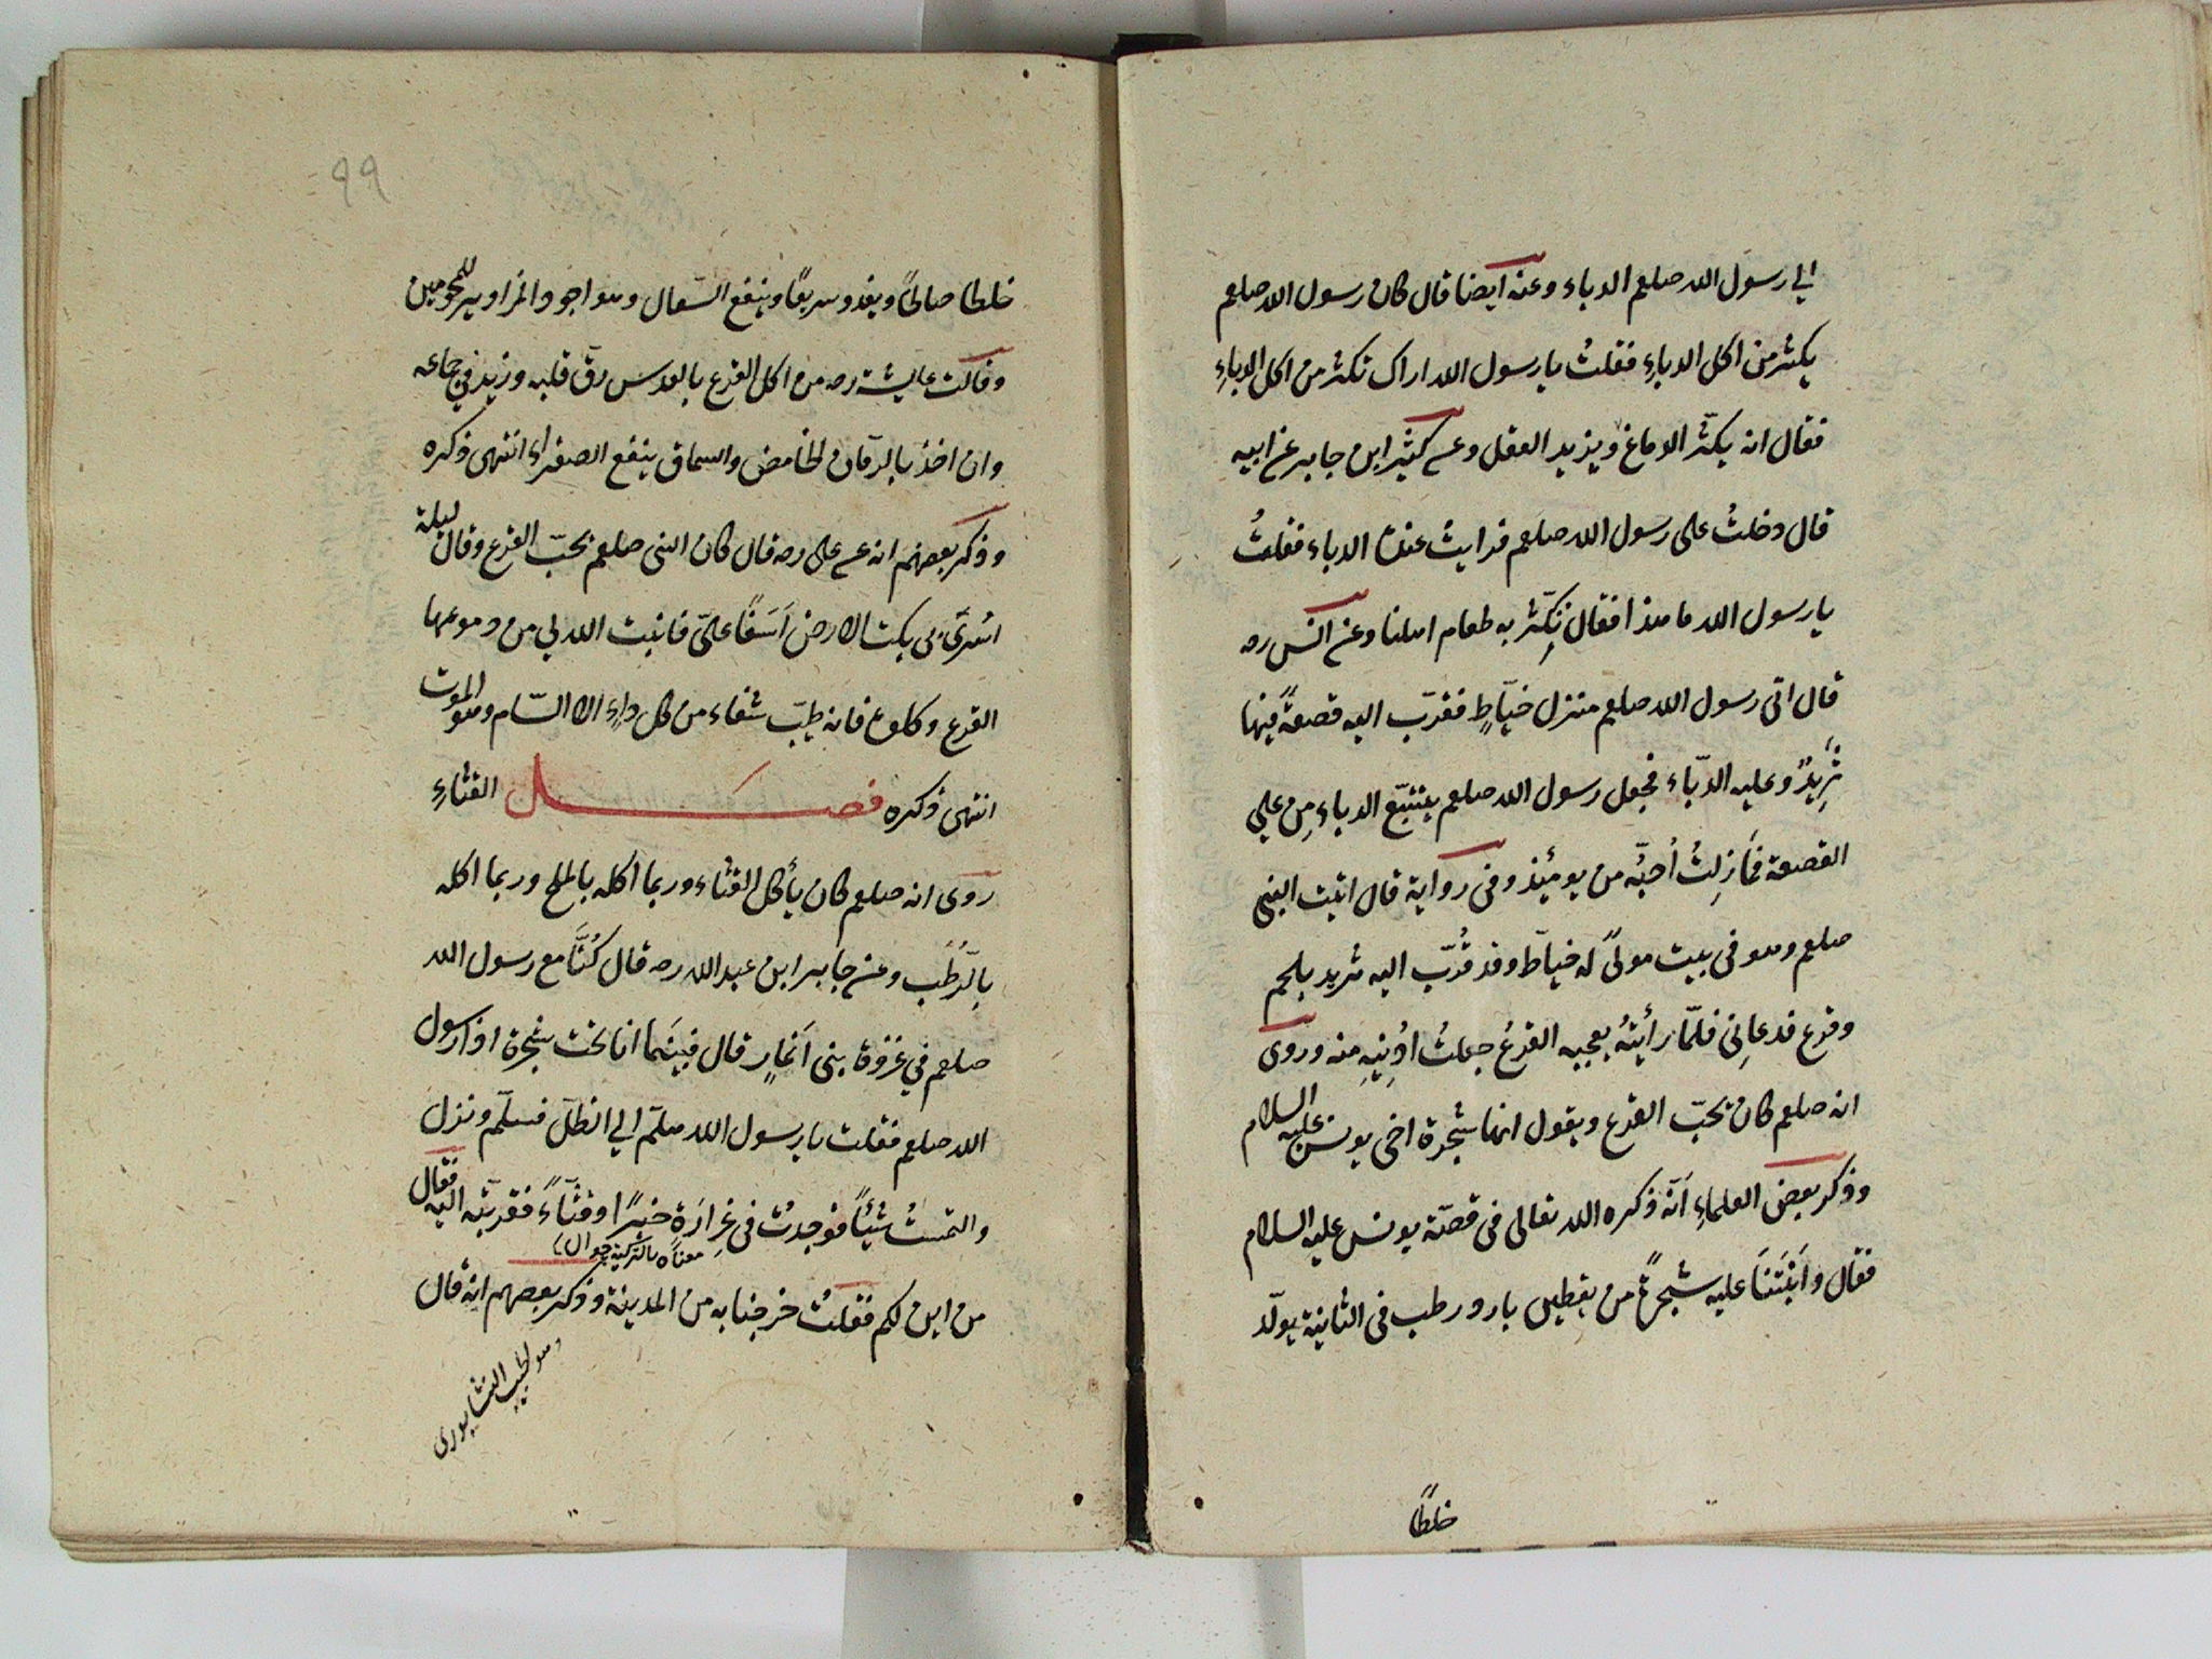 الي رسول الله صلعم الدباء وعنه ايضا قال كان رسول الله صلعم
يكثر من اكل الدباءِ فقلتُ يا رسول الله اراك تكثر من اكل الدباءِ
فقال انه يكثّر الدماغ ويزيد العقل وعن كثير ابن جابر عن ابيه
قال دخلتُ على رسول الله صلعم فرايت عنده الدباء فقلتُ
يا رسول الله ما هذا فقال نكثّر به طعام اهلنا وعن انس رضه
قال اتى رسول الله صلعم منزل خيّاطٍ فقدّب اليه قصعةً فيها
ثَرِيدٌ وعليه الدّباء فجعل رسول الله صلعم يتتبّع الدباء مِن على
القصعة فمَا زِلتُ اُحبّه من يومئِذ وفى رواية قال اتيت النبى
صلعم وهو فى بيت مولىً له خياط وقد قُدّب اليه ثريد بلحم
وقرع فدعانى فلمّا رأيتهُ يعجبه القرعُ جعلتُ اُدنِيهِ منه وروى
انه صلعم كان يحبّ القرع ويقول انها شجرة اخى يونس عليه السلام
وذكر بعض العلماءِ اَنّه ذكره الله تعالى فى قصّة يونس عليه السلام
فقال واَنبَتنَا عليه شجرةً من يقطين بارد رطب فى الثانية يولّد
خلطًا
٩٩
خلطا صالحًا ويغذو سريعًا وينفع السّعال وهو اجود المزاوير للمحمومين
وقالت عايشة رضه من اكل القرع بالعدس رقّ قلبه وزيد في جماعه
وان اخذ بالرمّان الحامض والسماق ينفع الصفراء انتهى ذكره
وذكر بعضهم انه عن على رضه قال كان النبى صلعم يحبّ القرع وقال ليلة
اسُرىَ بى بكت الارض اَسَفًا علىّ فانبت الله لي من دموعها
القرع وكلوه فانه طيّب شفاء من كل داءٍ الا السّام وهو الموت
انتهى ذكره فصل القثاءِ
روى انه صلعم كان يأكل القثاء وربما اكله بالملح وربما اكله
بالرّطَب وعن جابر ابن عبد الله رضه قال كُنّا مع رسول الله
صلعم في غزوة بنى اَنمارٍ قال فبَينَما انا تحت شجرة اذا رسول
الله صلعم فقلت يا رسول الله هلمّ الي الظلّ فسلّم ونزل
والتمستُ شيئًا فوجدتُ فى غِرارَةٍ خبزًا وقثّاءً فقربّته اليه فقال
معناه بالتركية جوال
من اين لكم فقلتُ خرجنا به من المدينة وذكر بعضهم انه قال
وهو لطيب النشابورى